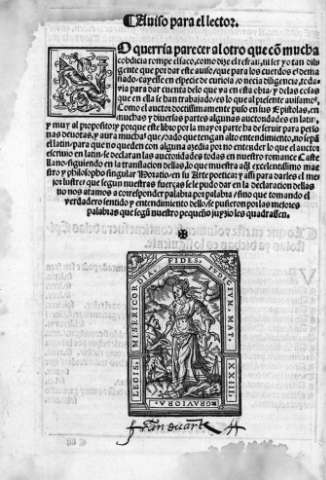 Auiso para el lector.
O querria parecer al otro que cõ mucha
cobdicia rompe el saco, como dize el refrã: ni ser yo tan di
ligente que por dar este auiso, que para los cuerdos es dema
siado, cayesse en especie de curiosa, o necia diligencia, toda
via para dar cuenta delo que va en esta obra: y delas cosas
que en ella se han trabajado, es lo que al presente auisamos.
Como el auctor doctissimamente puso en sus Epistolas, en
muchas y diuersas partes algunas auctoridades en latin,
y muy al proposito: y porque este libro por la mayor parte ha de seruir para perso
nas deuotas, y aun a muchas q̃ no dado que tengan alto entendimiento, no sepã
el latin: para que no queden con alguna azedia por no entender lo que el auctor
escriuio en latin: se declaran las auctoridades todas en nuestro romance Caste
llano, siguiendo en la translacion dellas, lo que muestra aq̃l excelentissimo mae
stro y philosopho singular Horatio en su Arte poetica: y assi para darles el me
jor lustre que segun nuestras fuerças se le pudo dar en la declaracion dellas
no nos atamos a corresponder palabra por palabra: sino que tomando el
verdadero sentido y entendimiento dello, se pusieron por las mejores
palabras que segũ nuestro pequeño juyzio les quadrassen.
LEGIS. MISERICORDIA. FIDES. IVDICIVM. MAT. XXIII. GRAVIORA.